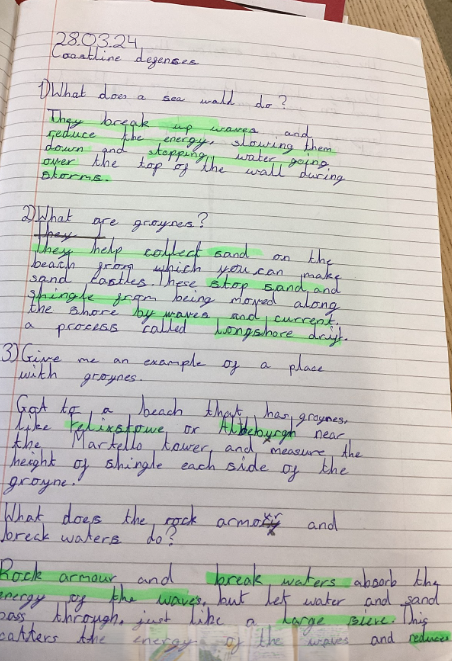 28.03.24
Coastline degenses
1) What does a sea wall do?
They break up waves and
reduce the energy, slowing them
down and stopping water going
over the top of the wall during
storms.
2) What are groynes?
They
They help collect sand on the
beach from which you can make
sand castles. These stop sand and
shingle from being moved along
the shore by waves and current.
a process called longshore drift.
3) Give me an example of a place
with groynes.
Got to a beach that has groynes,
like Felixstowe or Aldeburgh near
the Martello tower, and measure the
height of shingle each side of the
groyne.
What does the rock and
breck waters do?
Rock armour and break waters absorb the
energy of the waves, but let water and sand
pass through, just like a large This
the energy of the waves and reduces